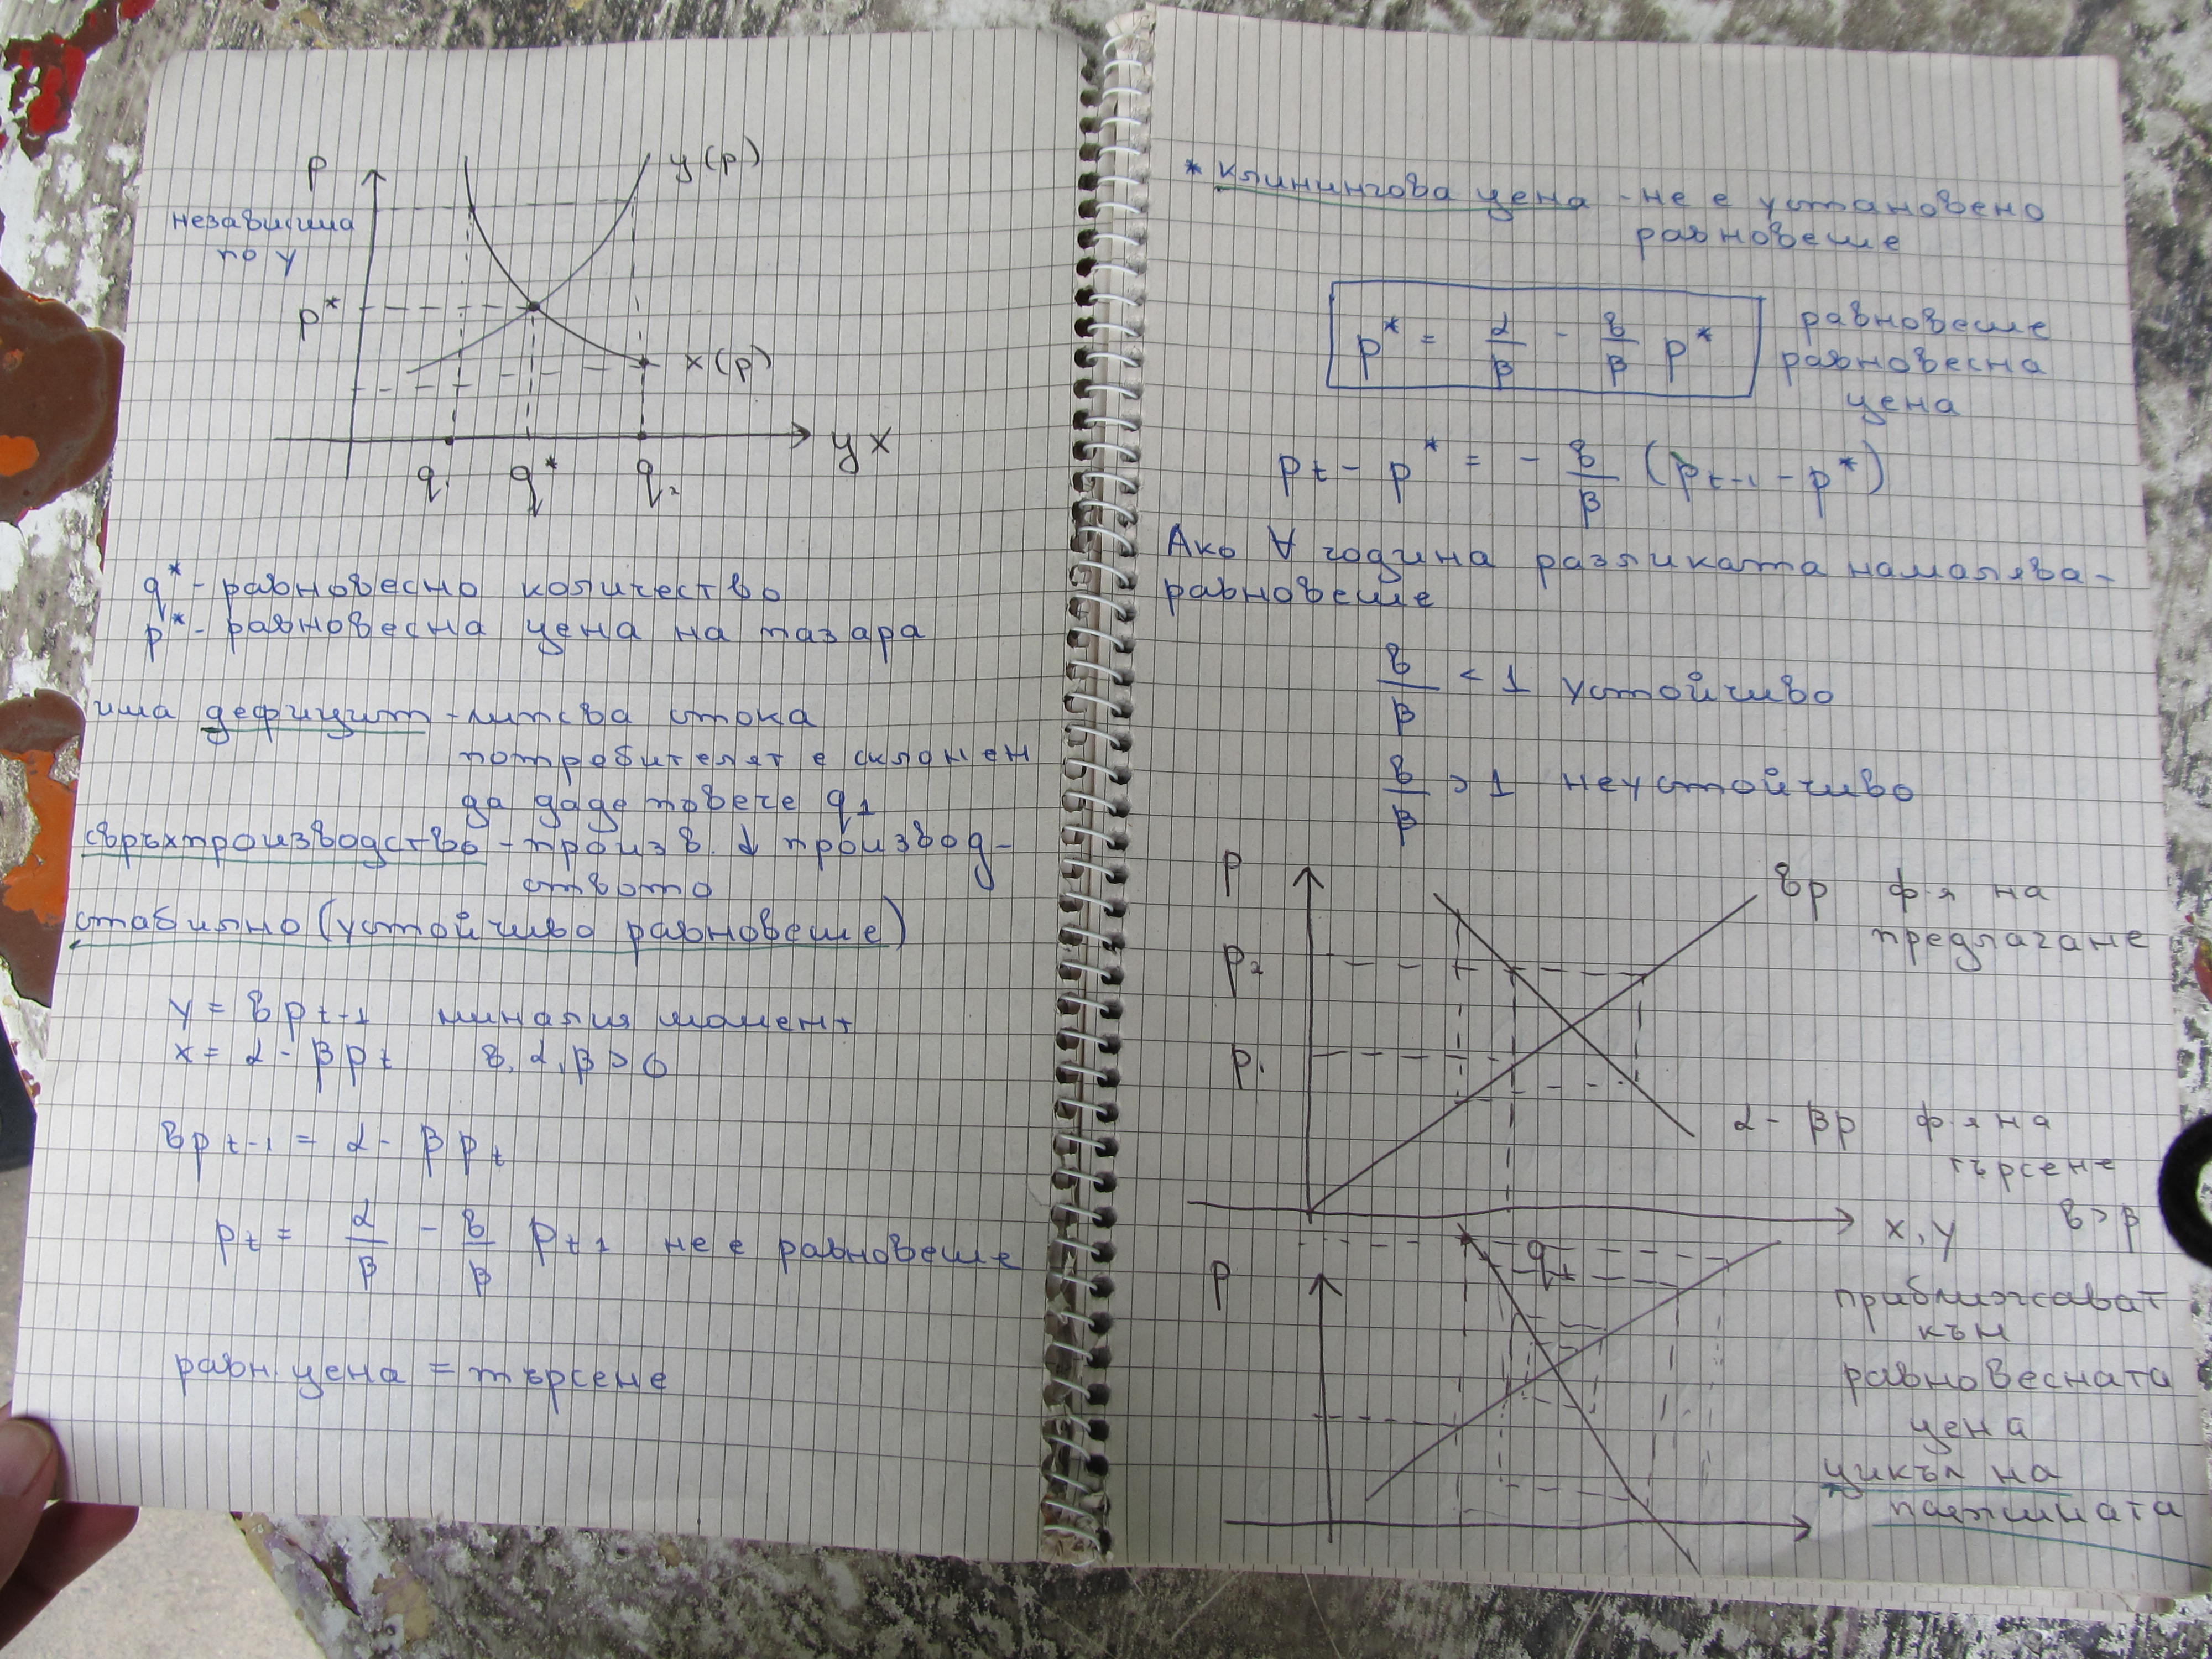 p
y(p)
независима
по y
p*
x(p)
y x
q₁
q*
q₂
q* - равновесно количество
p* - равновесна цена на пазара
има дефицит - липсва стока
потребителят е склонен
да даде повече q1
свръхпроизводство - произв. ↓ производ-
ството
стабилно (устойчиво равновесие)
y = вp t-1 миналия момент
x = α - βp t в, α, β > 0
вp t-1 = α - βp t
p t = α/β - в/β p t-1 не е равновесие
равн. цена = търсене
* Клинингова цена - не е установено
равновесие
p* = α/β - в/β p*
равновесие
равновесна
цена
p t - p* = - в/β (p t-1 - p*)
Ако ∀ година разликата намалява -
равновесие
в/β < 1 устойчиво
в/β > 1 неустойчиво
p
вp ф-я на
предлагане
p₂
p₁
α - βp ф-я на
търсене
x, y
в > β
q t
p
приближават
към
равновесната
цена
цикъл на
паяжината